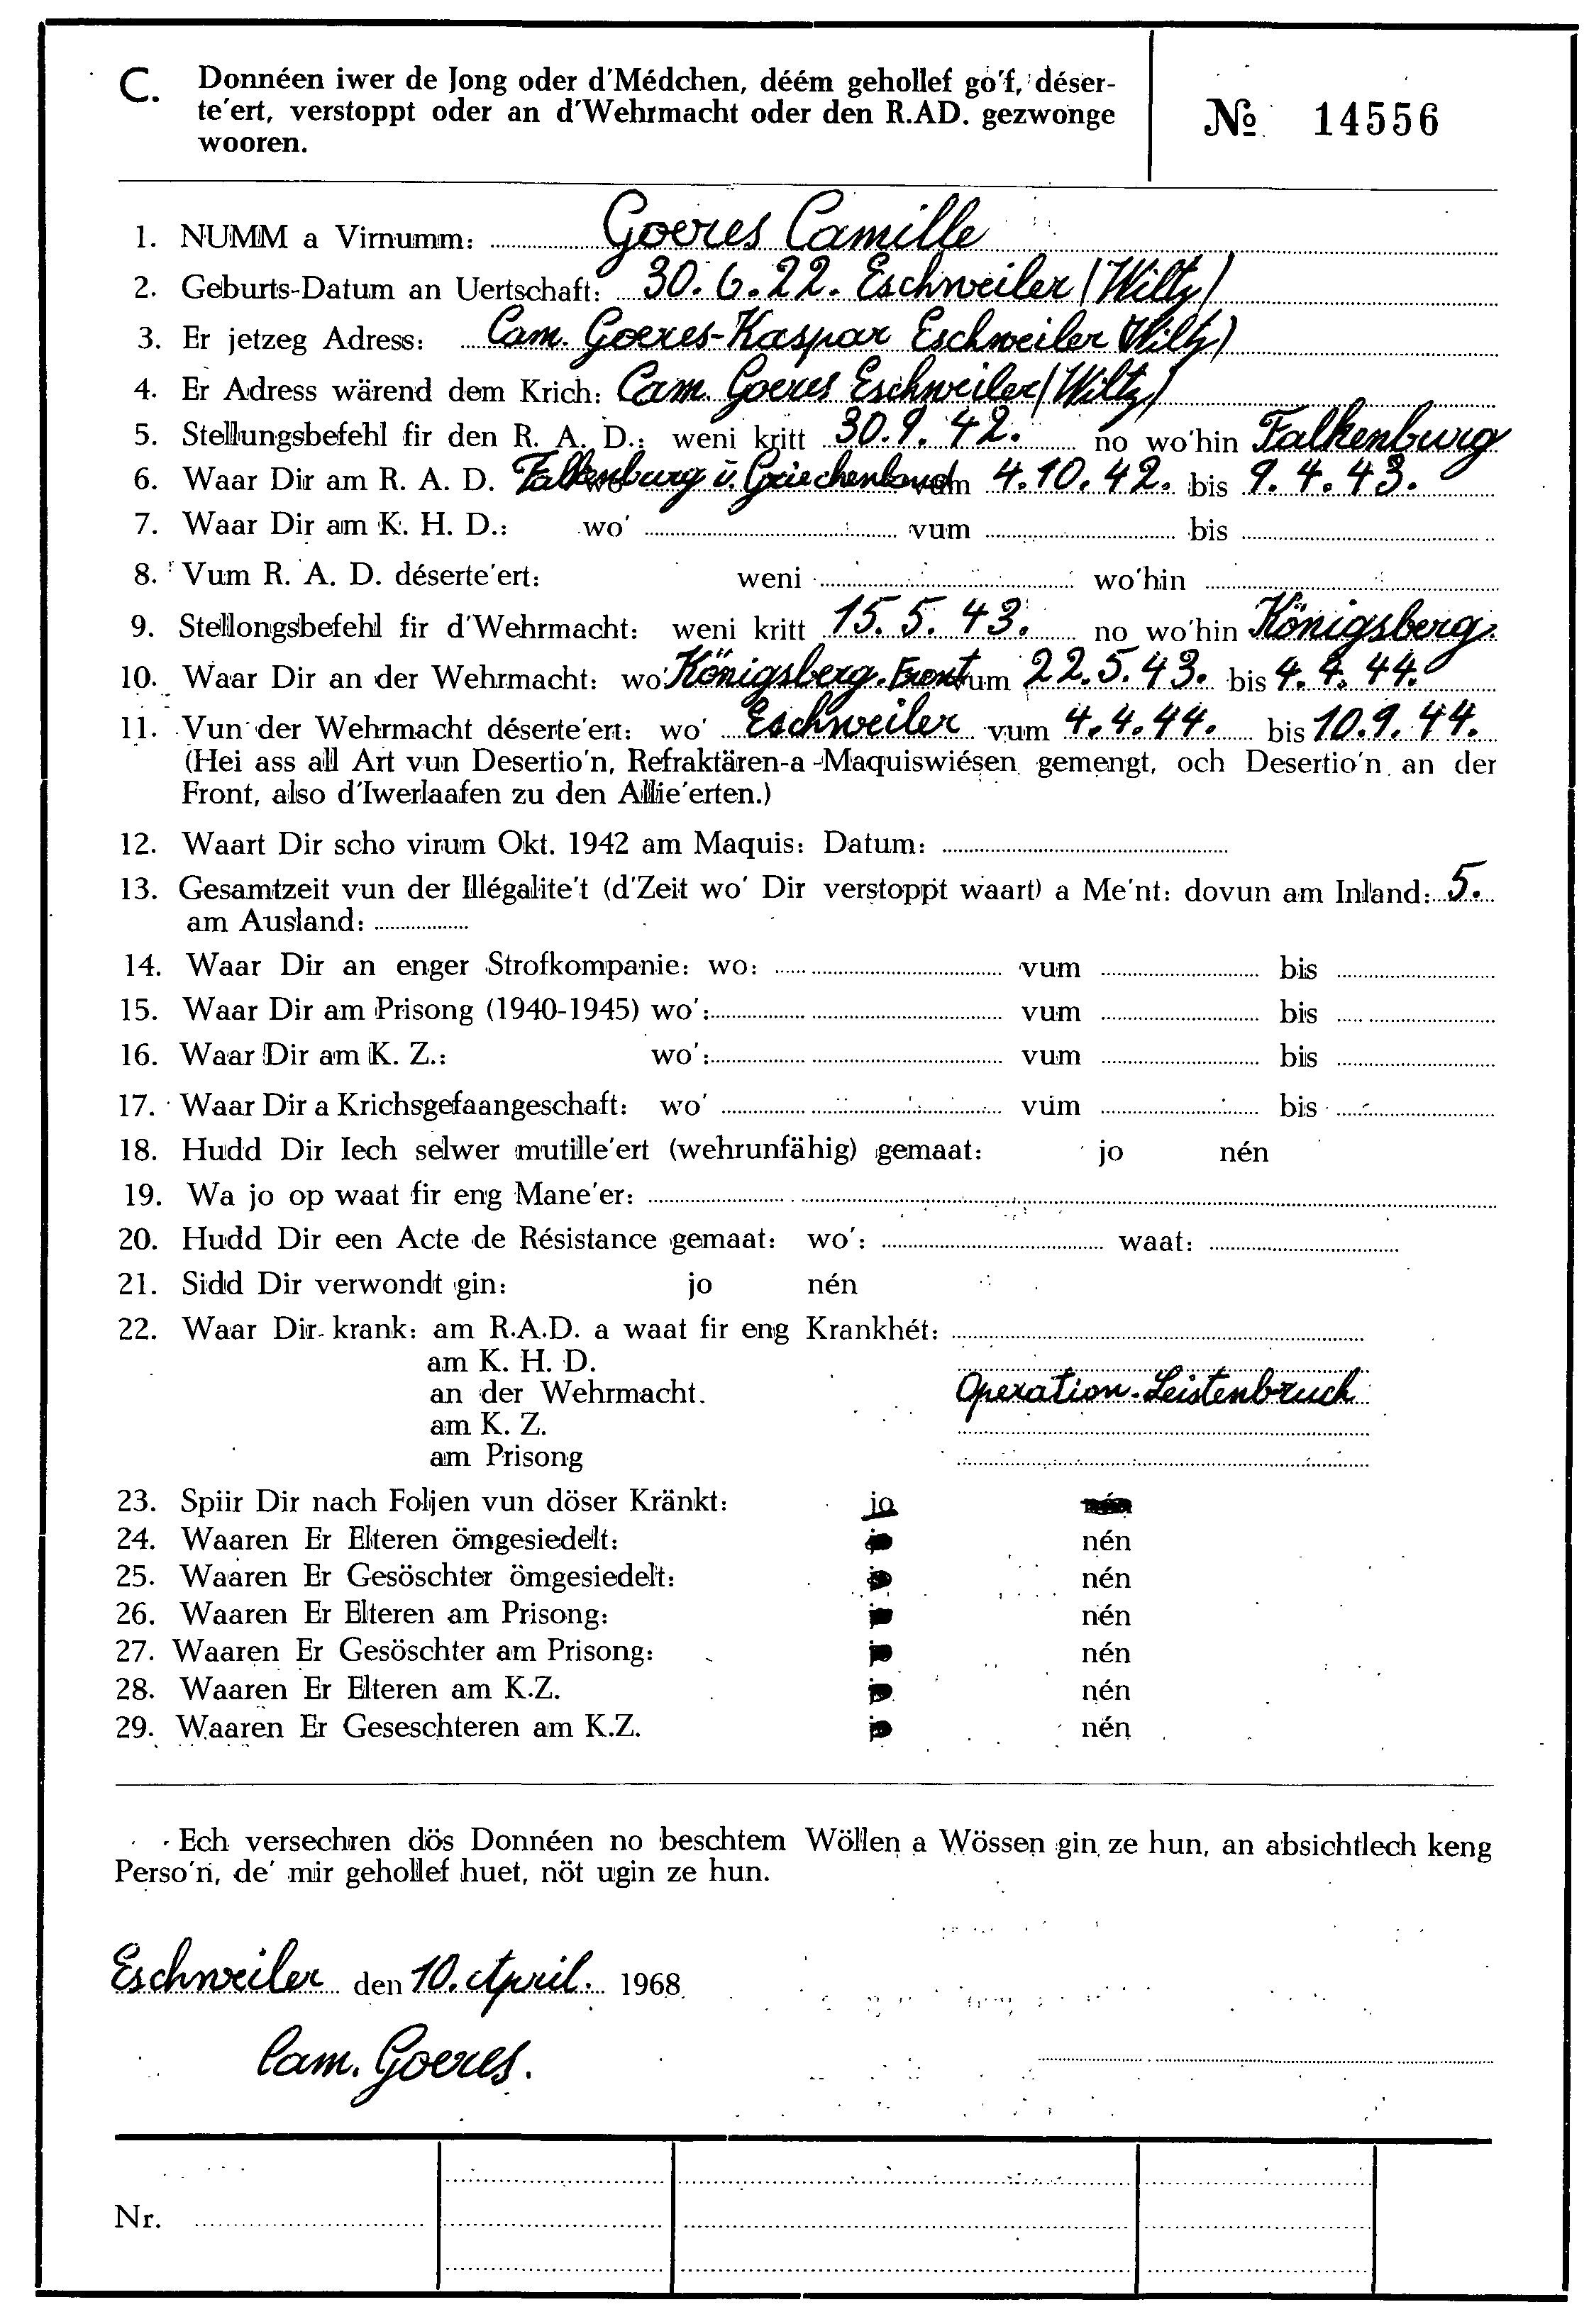 C. Donnéen iwer de Jong oder d'Médchen, déém gehollef go'f, déser-
te'ert, verstoppt oder an d'Wehrmacht oder den R.AD. gezwonge
wooren.
No 14556
1. NUMM a Virnumm: Goeres Camille
2. Geburts-Datum an Uertschaft: 30.6.22. Eschweiler (Wiltz)
3. Er jetzeg Adress: Cam. Goeres-Kaspar Eschweiler (Wiltz)
4. Er Adress wärend dem Krich: Cam. Goeres Eschweiler (Wiltz)
5. Stellungsbefehl fir den R. A. D.: weni kritt 30.9.42. no wo'hin Falkenburg
6. Waar Dir am R. A. D. wo Falkenburg ü. Griechenland vum 4.10.42. bis 9.4.43.
7. Waar Dir am K. H. D.: wo' vum bis
8. Vum R. A. D. déserte'ert: weni wo'hin
9. Stellongsbefehl fir d'Wehrmacht: weni kritt 15.5.43. no wo'hin Königsberg.
10. Waar Dir an der Wehrmacht: wo' Königsberg. Front vum 22.5.43. bis 4.4.44.
11. Vun der Wehrmacht déserte'ert: wo' Eschweiler vum 4.4.44. bis 10.9.44.
(Hei ass all Art vun Desertio'n, Refraktären-a -Maquiswiésen gemengt, och Desertio'n an der
Front, also d'Iwerlaafen zu den Allie'erten.)
12. Waart Dir scho virum Okt. 1942 am Maquis: Datum:
13. Gesamtzeit vun der Illégalite't (d'Zeit wo' Dir verstoppt waart) a Me'nt: dovun am Inland: 5.
am Ausland:
14. Waar Dir an enger Strofkompanie: wo: vum bis
15. Waar Dir am Prisong (1940-1945) wo': vum bis
16. Waar Dir am K. Z.: wo': vum bis
17. Waar Dir a Krichsgefaangeschaft: wo' vum bis
18. Hudd Dir Iech selwer mutille'ert (wehrunfähig) gemaat: jo nén
19. Wa jo op waat fir eng Mane'er:
20. Hudd Dir een Acte de Résistance gemaat: wo': waat:
21. Sidd Dir verwondt gin: jo nén
22. Waar Dir krank: am R.A.D. a waat fir eng Krankhét:
am K. H. D.
an der Wehrmacht. Operation. Leistenbruch
am K. Z.
am Prisong
23. Spiir Dir nach Foljen vun döser Kränkt: jo nén
24. Waaren Er Elteren ömgesiedelt: jo nén
25. Waaren Er Gesöschter ömgesiedelt: jo nén
26. Waaren Er Elteren am Prisong: jo nén
27. Waaren Er Gesöschter am Prisong: jo nén
28. Waaren Er Elteren am K.Z. jo nén
29. Waaren Er Geseschteren am K.Z. jo nén
Ech versechren dös Donnéen no beschtem Wöllen a Wössen gin ze hun, an absichtlech keng
Perso'n, de' mir gehollef huet, nöt ugin ze hun.
Eschweiler den 10. April. 1968
Cam. Goeres.
Nr.